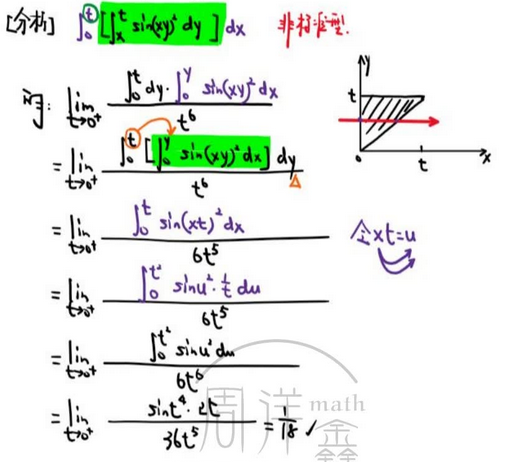 [分析] ∫₀ᵗ [∫ₓᵗ sin(xy)² dy] dx 非标准型.
y
t
o t x
lim t→0⁺ ∫₀ᵗ dy·∫₀ʸ sin(xy)² dx / t⁶
= lim t→0⁺ ∫₀ᵗ [∫₀ʸ sin(xy)² dx] dy / t⁶
= lim t→0⁺ ∫₀ᵗ sin(xt)² dx / 6t⁵ 令xt=u
= lim t→0⁺ ∫₀^t² sinu²·1/t du / 6t⁵
= lim t→0⁺ ∫₀^t² sinu² du / 6t⁶
= lim t→0⁺ sint⁴·2t / 36t⁵ = 1/18 ✓
周洋鑫 math